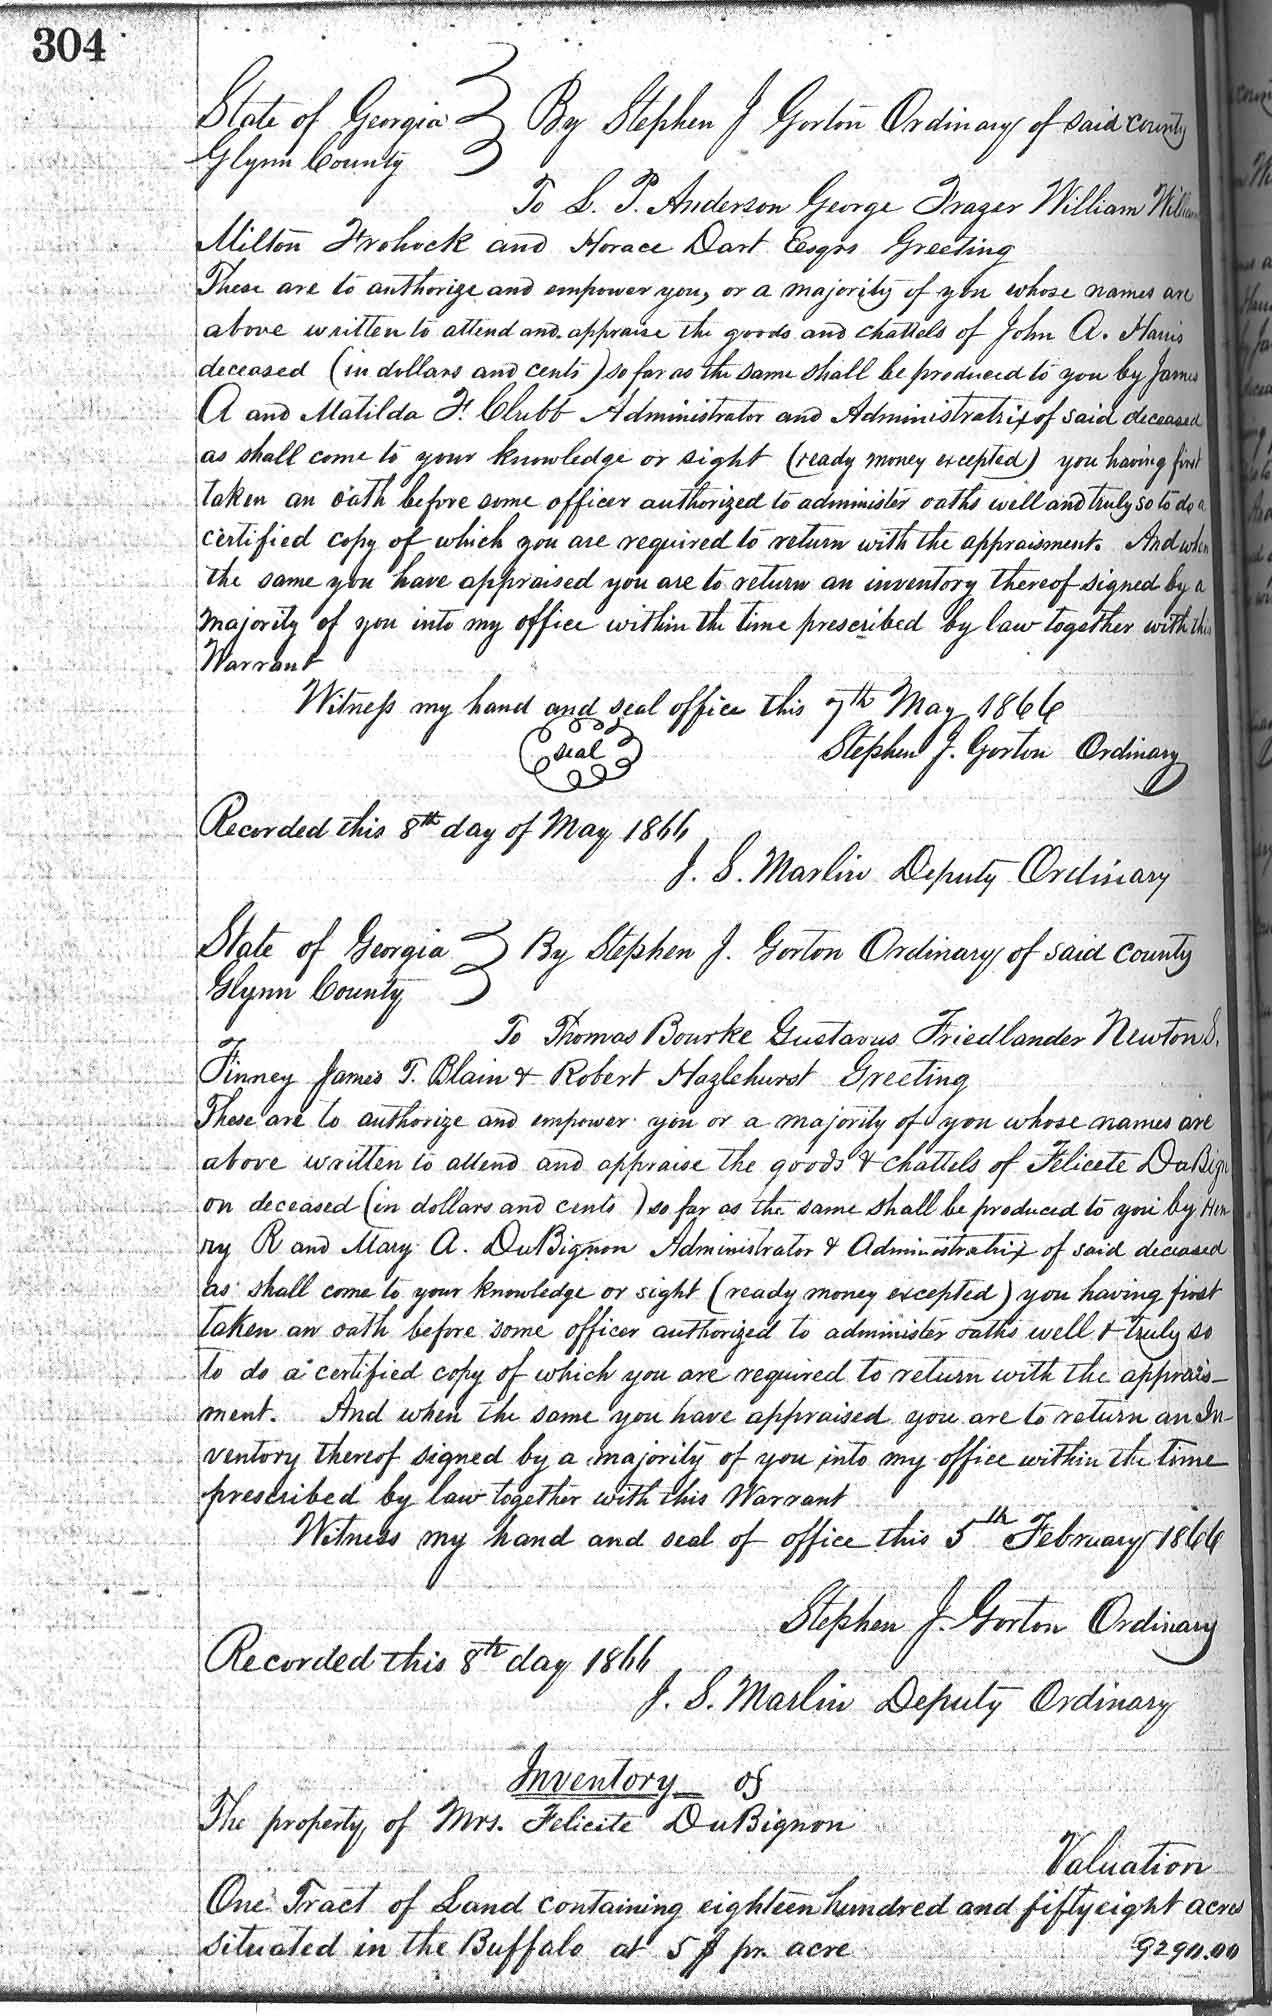 304
State of Georgia } By Stephen J Gorton Ordinary of said county
Glynn County
To L. P. Anderson George Frazer William
Milton Frohock and Horace Dart Eesqrs Greeting
These are to authorize and empower you, or a majority of you whose names are
above written to attend and appraise the goods and chattels of John A. Harris
deceased (in dollars and cents) so far as the same shall be produced to you by James
A and Matilda F. Clubb Administrator and Administratrix of said deceased
as shall come to your knowledge or sight (ready money excepted) you having first
taken an oath before some officer authorized to administer oaths well and truly so to do a
certified copy of which you are required to return with the appraisment. And when
the same you have appraised you are to return an inventory thereof signed by a
majority of you into my office within the time prescribed by law together with this
Warrant
Witness my hand and seal office this 7th May 1866
seal
Stephen J. Gorton Ordinary
Recorded this 8th day of May 1866
J. S. Marlin Deputy Ordinary
State of Georgia } By Stephen J. Gorton Ordinary of said county
Glynn County
To Thomas Bourke Gustavus Friedlander Newton S.
Finney James T. Blain & Robert Hazlehurst Greeting
These are to authorize and empower you or a majority of you whose names are
above written to attend and appraise the goods & chattels of Felicete DuBign
on deceased (in dollars and cents) so far as the same shall be produced to you by Hen
ry R and Mary A. DuBignon Administrator & Administratrix of said deceased
as shall come to your knowledge or sight (ready money excepted) you having first
taken an oath before some officer authorized to administer oaths well & truly so
to do a certified copy of which you are required to return with the apprais-
ment. And when the same you have appraised you are to return an In-
ventory thereof signed by a majority of you into my office within the time
prescribed by law together with this Warrant
Witness my hand and seal of office this 5th February 1866
Stephen J. Gorton Ordinary
Recorded this 8th day 1866
J. S. Marlin Deputy Ordinary
Inventory of
The property of Mrs. Felicite DuBignon
Valuation
One Tract of Land containing eighteen hundred and fifty eight acres
situated in the Buffalo at 5 $ pr. acre 9290.00